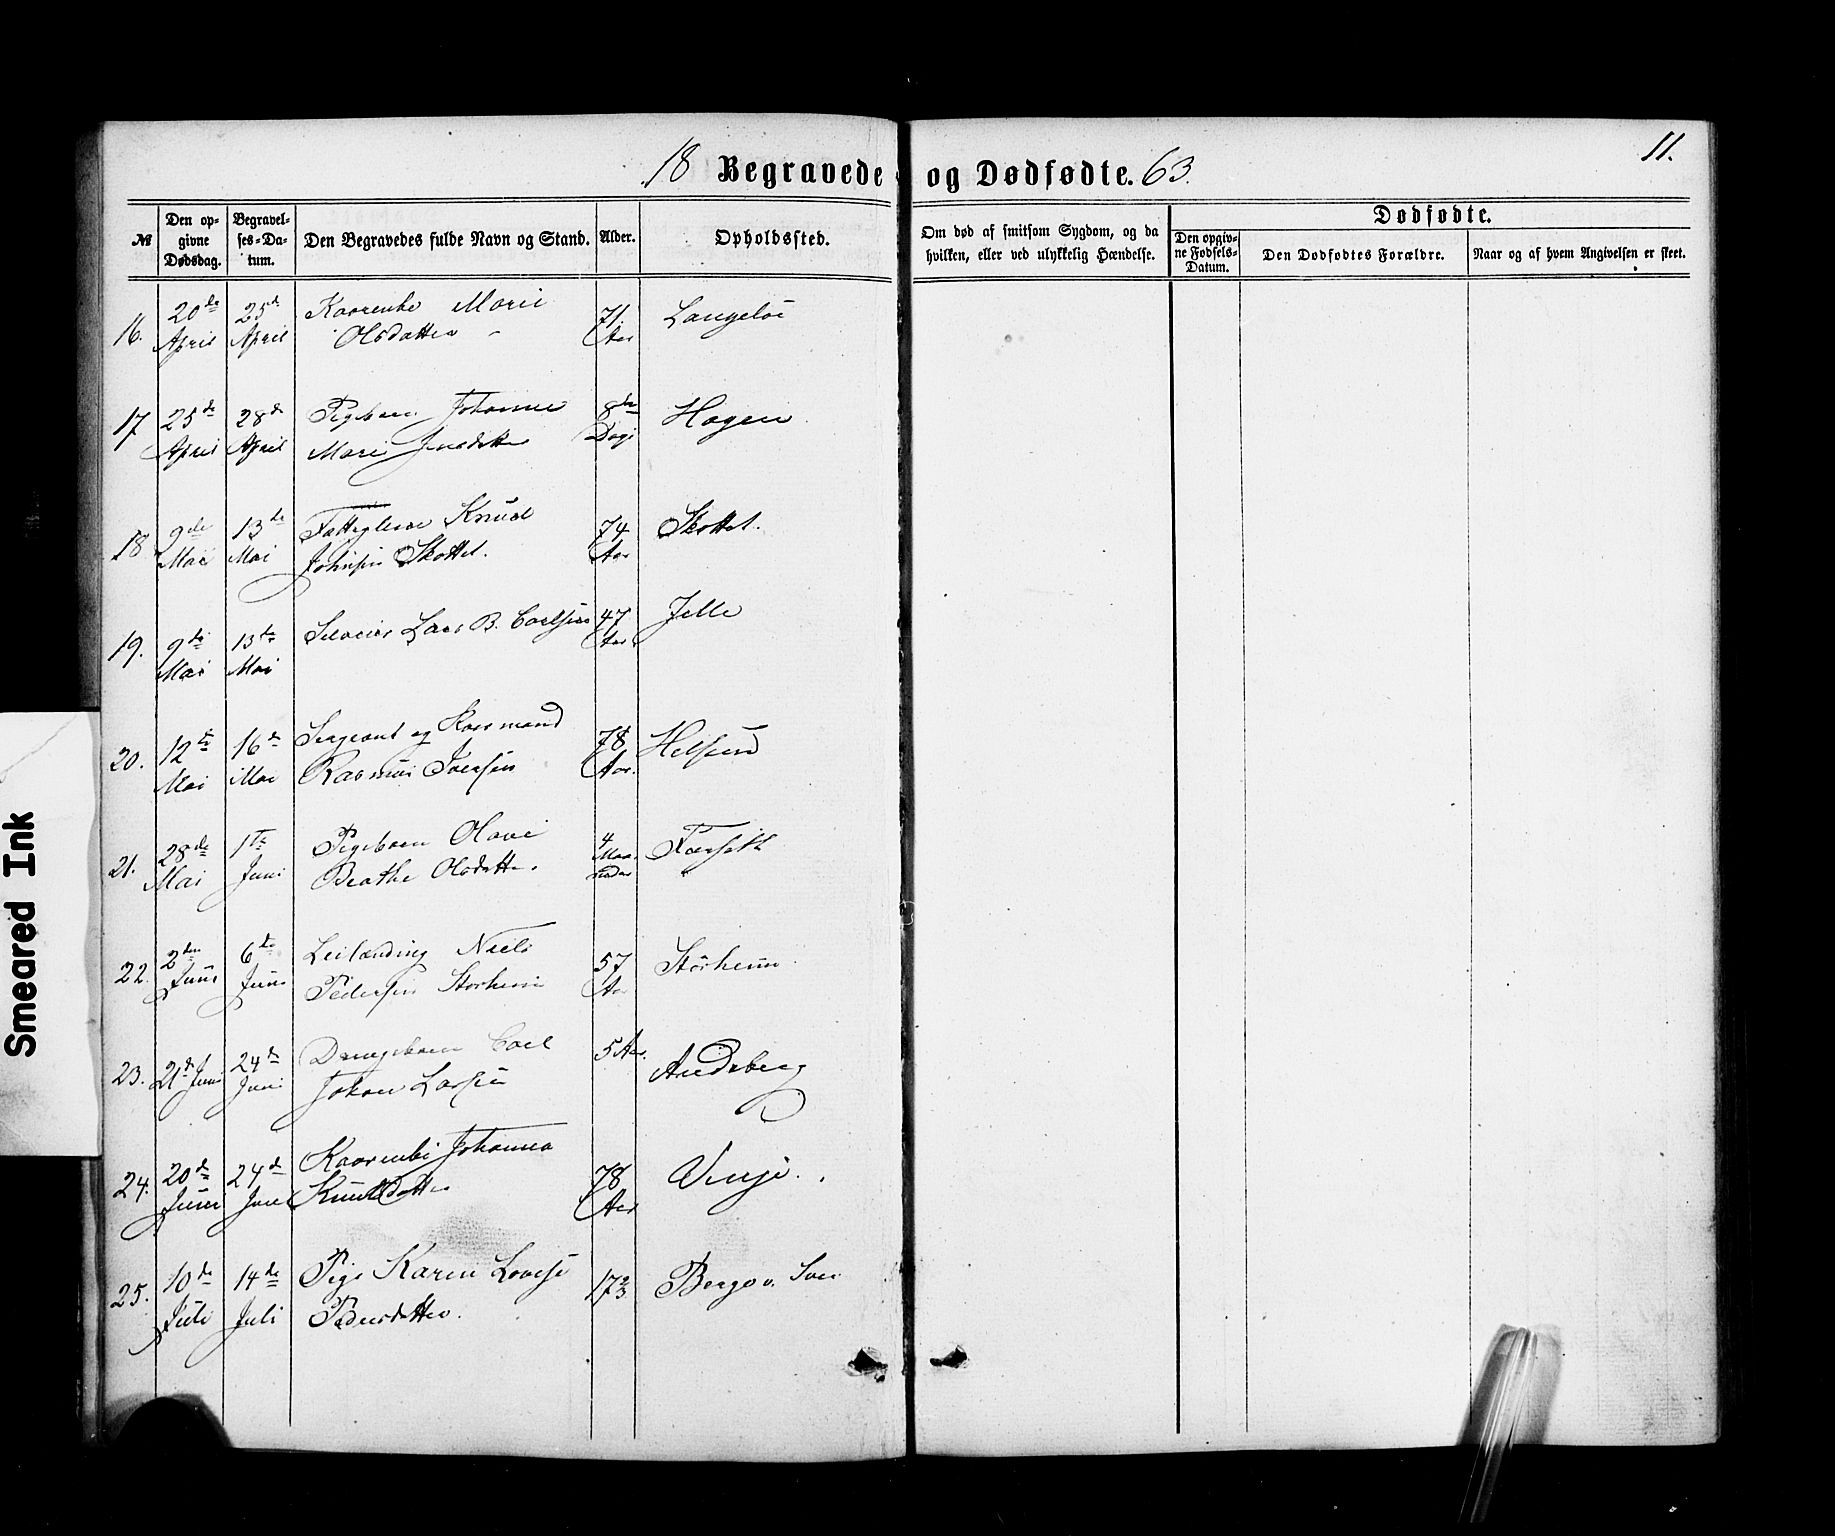 11.
18 Begravede og Dødfødte. 63.
№
Den opgivne Dødsdag.
Begravelses-Datum.
Den Begravedes fulde Navn og Stand.
Alder.
Opholdssted.
Om død af smitsom Sygdom, og da hvilken, eller ved ulykkelig Hændelse.
Dødfødte.
Den opgivne Fødsels-Datum.
Den Dødfødtes Forældre.
Naar og af hvem Angivelsen er skeet.
16. 20de 25de Kaarenke Marie 71. Langeløe
April April Olsdatter Aar
17 25de 28de Pigebarn Johanne 8te Hagen
April April Marie Dage
18 9de 13de Knud 74 Skottet.
Mai Mai Johnsen Skottet. Aar
19. 9de 13de Lars B. Carlsen 47 Jelle
Mai Mai Aar
20. 12te 16de Sergeant og Kaarmand 78
Mai Mai Rasmus Iversen Aar.
21. 28de 1te Pigebarn Olave 4
Mai Juni Beathe Olsdatter. Maaneder
22. 2den 6te Leilænding Niels 57 Storheim
Juni Juni Pedersen Storheim Aar
23. 21de Juni 24de Drengebarn Carl 5 Aar. Andsberg
Juni Johan Larsen
24. 20de 24de Johanna 78
Juni Juni Knudsdatter Aar
25. 10de 14de Pige Karen Lovise 17 2/3
Juli Juli Pedersdatter.
Smeared Ink